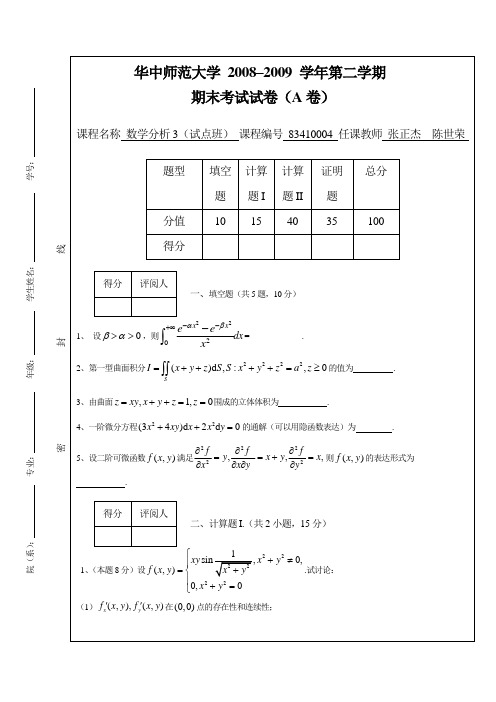 华中师范大学 2008–2009 学年第二学期
期末考试试卷（A 卷）
课程名称 数学分析3（试点班） 课程编号 83410004 任课教师 张正杰 陈世荣
题型 填空题 计算题 I 计算题 II 证明题 总分
分值 10 15 40 35 100
得分
得分 评阅人
一、填空题（共 5 题，10 分）
1、 设 β > α > 0，则 ∫₀^{+∞} (e^{-αx²} − e^{-βx²})/x² dx= .
2、第一型曲面积分 I = ∬_S (x + y + z)dS, S : x² + y² + z² = a², z ≥ 0 的值为 .
3、由曲面 z = xy, x + y + z = 1, z = 0 围成的立体体积为 .
4、一阶微分方程 (3x² + 4xy)dx + 2x²dy = 0 的通解（可以用隐函数表达）为 .
5、设二阶可微函数 f(x, y) 满足 ∂²f/∂x² = y, ∂²f/∂x∂y = x + y, ∂²f/∂y² = x, 则 f(x, y) 的表达形式为
.
得分 评阅人
二、计算题 I.（共 2 小题，15 分）
1、（本题 8 分）设 f(x, y) = { xy sin 1/√(x² + y²), x² + y² ≠ 0, 0, x² + y² = 0 .试讨论：
（1） f′ₓ(x, y), f′ᵧ(x, y) 在 (0,0) 点的存在性和连续性；
院（系）： 专业： 年级： 学生姓名： 学号：
密 封 线